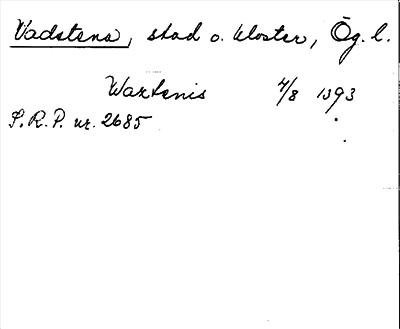 Vadstena, stad o. kloster, Ög. l.
Waxtenis 4/8 1393
S.R.P. nr. 2685